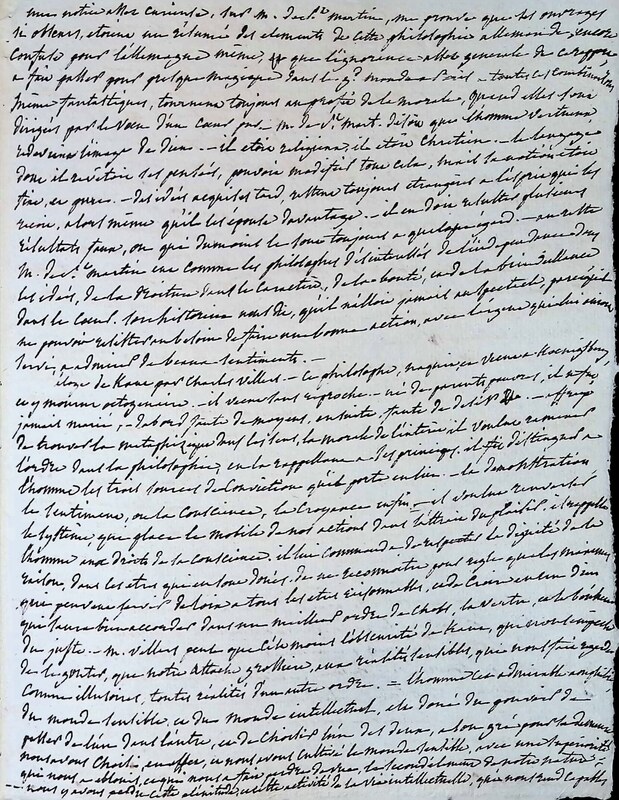 une notice assez curieuse, sur m. de st martin, me prouve que les ouvrages
si obscurs, etoient un résumé des elements de cette philosophie allemande, encore
confuse pour l'allemagne même, et que l'ignorance assez generale de ces
a fait passer pour presque magique dans le monde a Paris. – toutes ces combinaisons
même fantastiques, tournent toujours au profit de la morale, quand elles sont
dirigées par le vœu d'un cœur pur – m. de st mart. disoit que l'homme vertueux
l'image de Dieu – il etoit religieux, il etoit Chretien – le langage
dont il revêtoit ses pensées, pouvoit modifier tout cela, mais la notion etoit
fixe, et pure. – des idées acquises tard, restent toujours etrangeres a l'esprit qui les
reçoit, alors même qu'il les epouse davantage – il en doit resulter plusieurs
résultats faux, ou qui du moins le sont toujours a quelque egard. – au reste
M. de st martin eut comme les philosophes désinteressés de l'independance dans
les idées, de la droiture dans le caractere, de la bonté, et de la bienveillance
dans le cœur. son historien nous dit, qu'il n'alloit jamais au spectacle,
ne pouvoir resister au besoin de faire une bonne action, avec l'argent qui lui auroit
servi, a admirer de beaux sentiments. –
eloge de Kant par Charles Villers – Ce philosophe, naquit, et vecut a Koenigsberg,
et y mourut octogenaire – il vecut sans reproche – né de parents pauvres, il ne fut
jamais marié, d'abord faute de moyens, ensuite, faute de desir –
de trouver la metaphysique dans les sens, la morale de l'interêt il voulut ramener
l'ordre dans la philosophie, en la rappellant a ses principes. il fit distinguer a
l'homme les trois sources de conviction qu'il porte en lui – la demonstration,
le sentiment, ou la conscience, la Croyance enfin – il voulut renverser
le systême, qui place le mobile de nos actions dans l'attrait du plaisir. il rappella
l'homme aux droits de la conscience. il lui commanda de respecter la dignité de la
raison, dans les etres qui en sont doués, de ne reconnoitre pour regle que les maximes
qui peuvent servir de loix a tous les etres raisonnables, et de croire en un Dieu
qui saura bien accorder dans un meilleur ordre de choses, la vertu, et le bonheur
du juste. – m. Villers pense que c'est moins l'obscurité de Kant, qui
de le gouter, que notre attache grossiere, aux réalités sensibles, qui nous fait regarder
comme illusoires, toutes réalités d'un autre ordre. = l'homme est
du monde sensible, et du monde intellectuel, est doué du pouvoir de
passer de l'un dans l'autre, et de choisir l'un des deux, a son gré pour sa demeure
nous avons choisi en effet, et nous avons cultivé le monde sensible, avec une superiorité
qui nous a eblouis, et qui nous a fait perdre de vue, la seconde moitié de notre nature –
– nous y avons perdu cette plénitude, et cette activité de la vie intellectuelle, qui nous rend capables